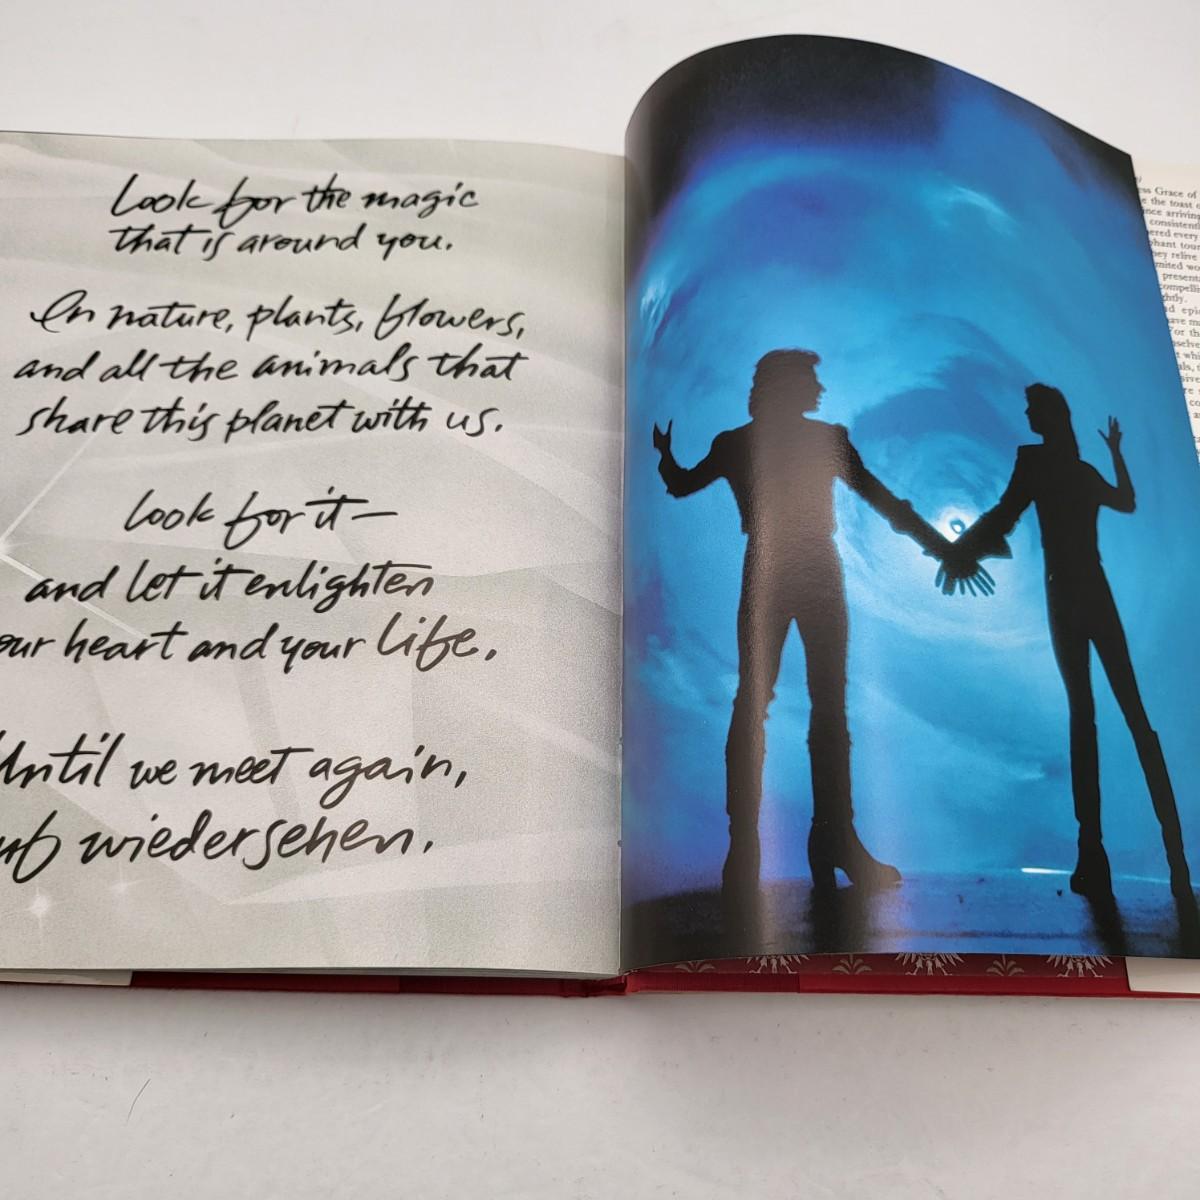 Look for the magic
that is around you.
In nature, plants, flowers,
and all the animals that
share this planet with us.
Look for it—
and let it enlighten
our heart and your life.
Until we meet again,
uf wiedersehen.
ess Grace of
e the toast o
nce arriving
consistentl
ered every
phant tour
hey relive
mited wo
present
compelli
ghtly.
nd epic
ave ma
For th
mselve
t whi